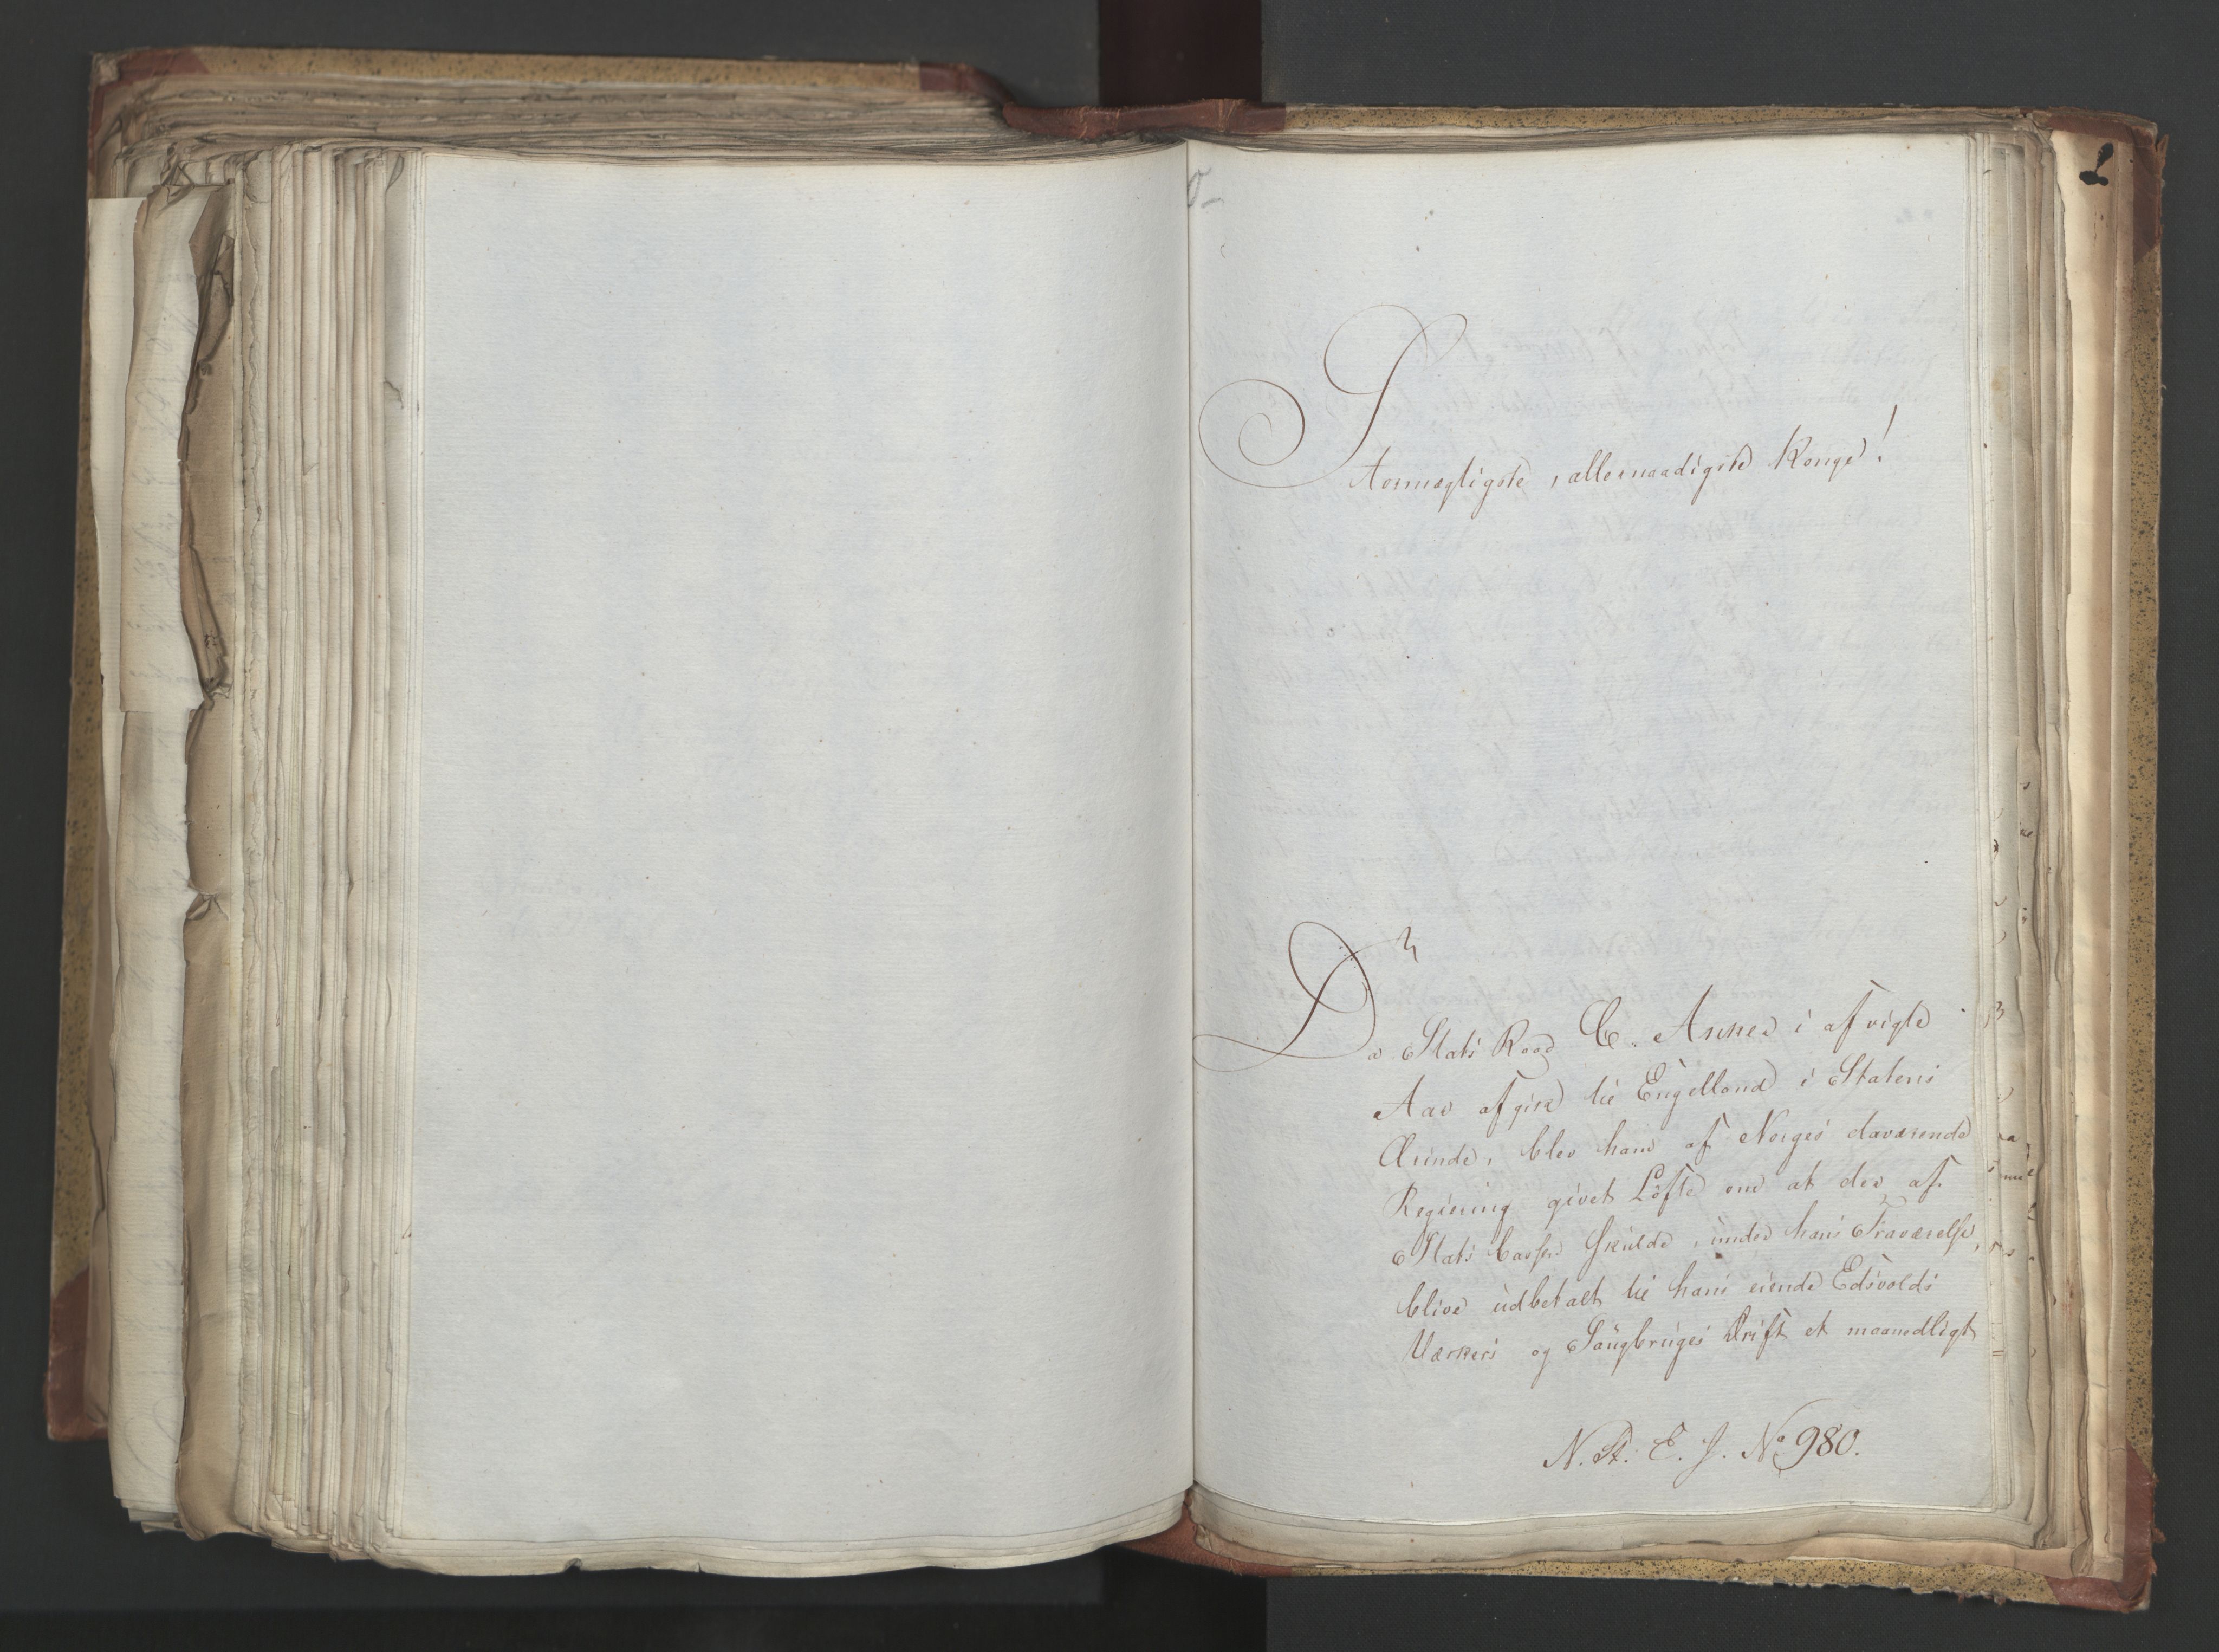 Stormægtigste, allernaadigste Konge!
Da Stats Raad C. Anker i afvigte
Aar afgik til Engelland i Statens
Ærinde, blev ham af Norges daværende
Regiering givet Löfte om at der af
Stats Cassen skulde, under hans Fraværelse,
blive udbetalt til hans eiende Edsvolds
Værkers og Saugbruges Drift et maanedligt
N. St. E. J. No 980.